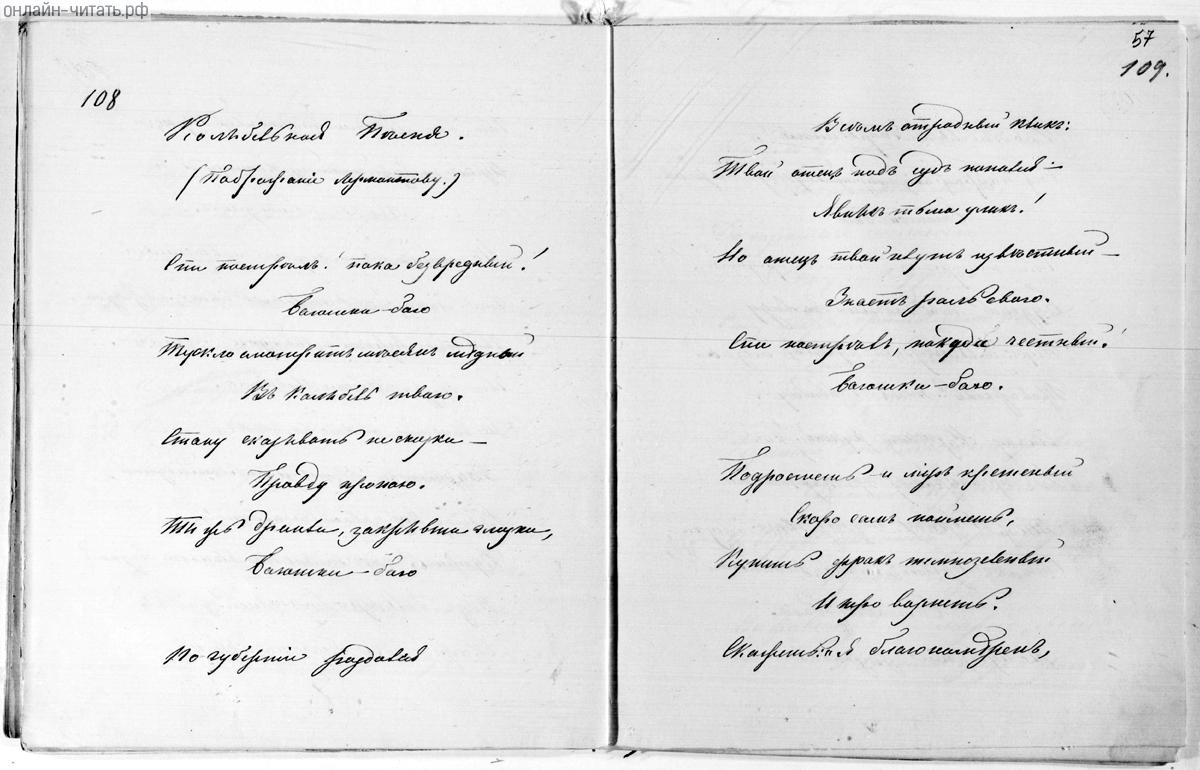 онлайн-читать.рф
108
Колыбѣльная Пѣсня.
(Подражаніе Лермонтову.)
Спи пострѣлъ! пока безвредный!
Баюшки-баю
Тускло смотритъ мѣсяцъ мѣдный
Въ колыбѣль твою.
Стану сказывать не сказки —
Правду пропою.
Ты жъ дремли, закрывши глазки,
Баюшки-баю
По губерніи раздался
57
109.
Всѣмъ отрадный кликъ:
Твой отецъ подъ судъ попался —
Явныхъ тьма уликъ!
Но отецъ твой плутъ извѣстный —
Знаетъ роль свою.
Спи пострѣлъ, покуда честный!
Баюшки-баю.
Подростешь и міръ крещеный
Скоро самъ поймешь,
Купишь фракъ темнозеленый
И перо возьмешь.
Скажешь: „я благонамѣренъ,